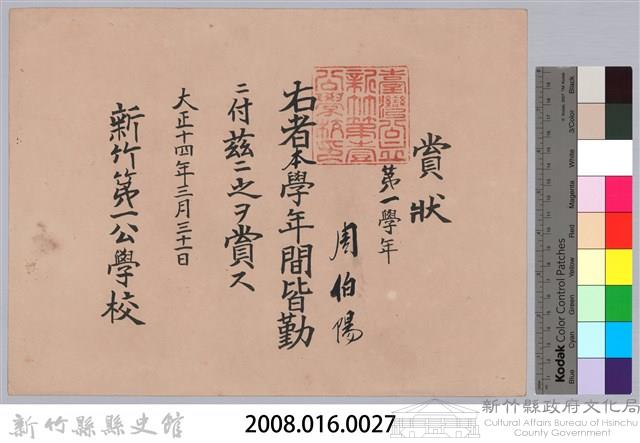 賞狀
第一學年
周伯陽
右者本學年間皆勤
ニ付茲ニ之ヲ賞ス
大正十四年三月三十一日
新竹第一公學校
臺灣公立
新竹第壹
公學校印
Black
3/Color
White
Magenta
Red
Yellow
Green
Cyan
Blue
Kodak Color Control Patches
新竹縣縣史館
2008.016.0027
新竹縣政府文化局
Cultural Affairs Bureau of Hsinchu
County Government